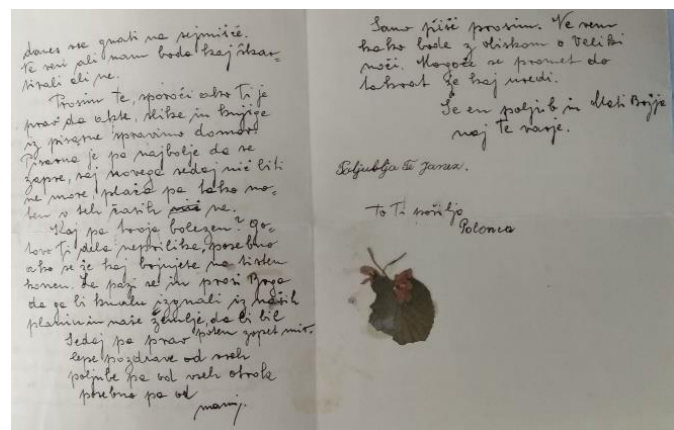 danes vse gnati na sejmišče.
Te vesi ali nam bodo kaj škar-
tirali ali ne.
Prosim Te, sporoči ako Ti je
prav da akte, slike in knjige
iz pisarne spravimo domov.
Pisarna je pa najbolje da se
zapre, saj novega sedaj nič biti
ne more, plača pa tako no-
ben v teh časih ne.
Kaj pa tvoja bolezen? Go-
tovo Ti dela neprilike, posebno
ako se še kaj bojujete na tistem
koncu. Le pazi se in prosi Boga
da ga bi kmalu izgnali iz naših
planin in naše zemlje, da bi bil
Sedaj pa prav poten zopet mir.
lepe pozdrave od vseh
poljube pa od vseh otrok
posebno pa od
mamj.
Samo piši prosim. Ne vem
kako bode z obiskom o Veliki
noči. Mogoče se promet do
takrat že kaj uredi.
Še en poljub in Mati Božja
naj Te varje.
Poljublja Te Janez.
To Ti pošilja
Polonca